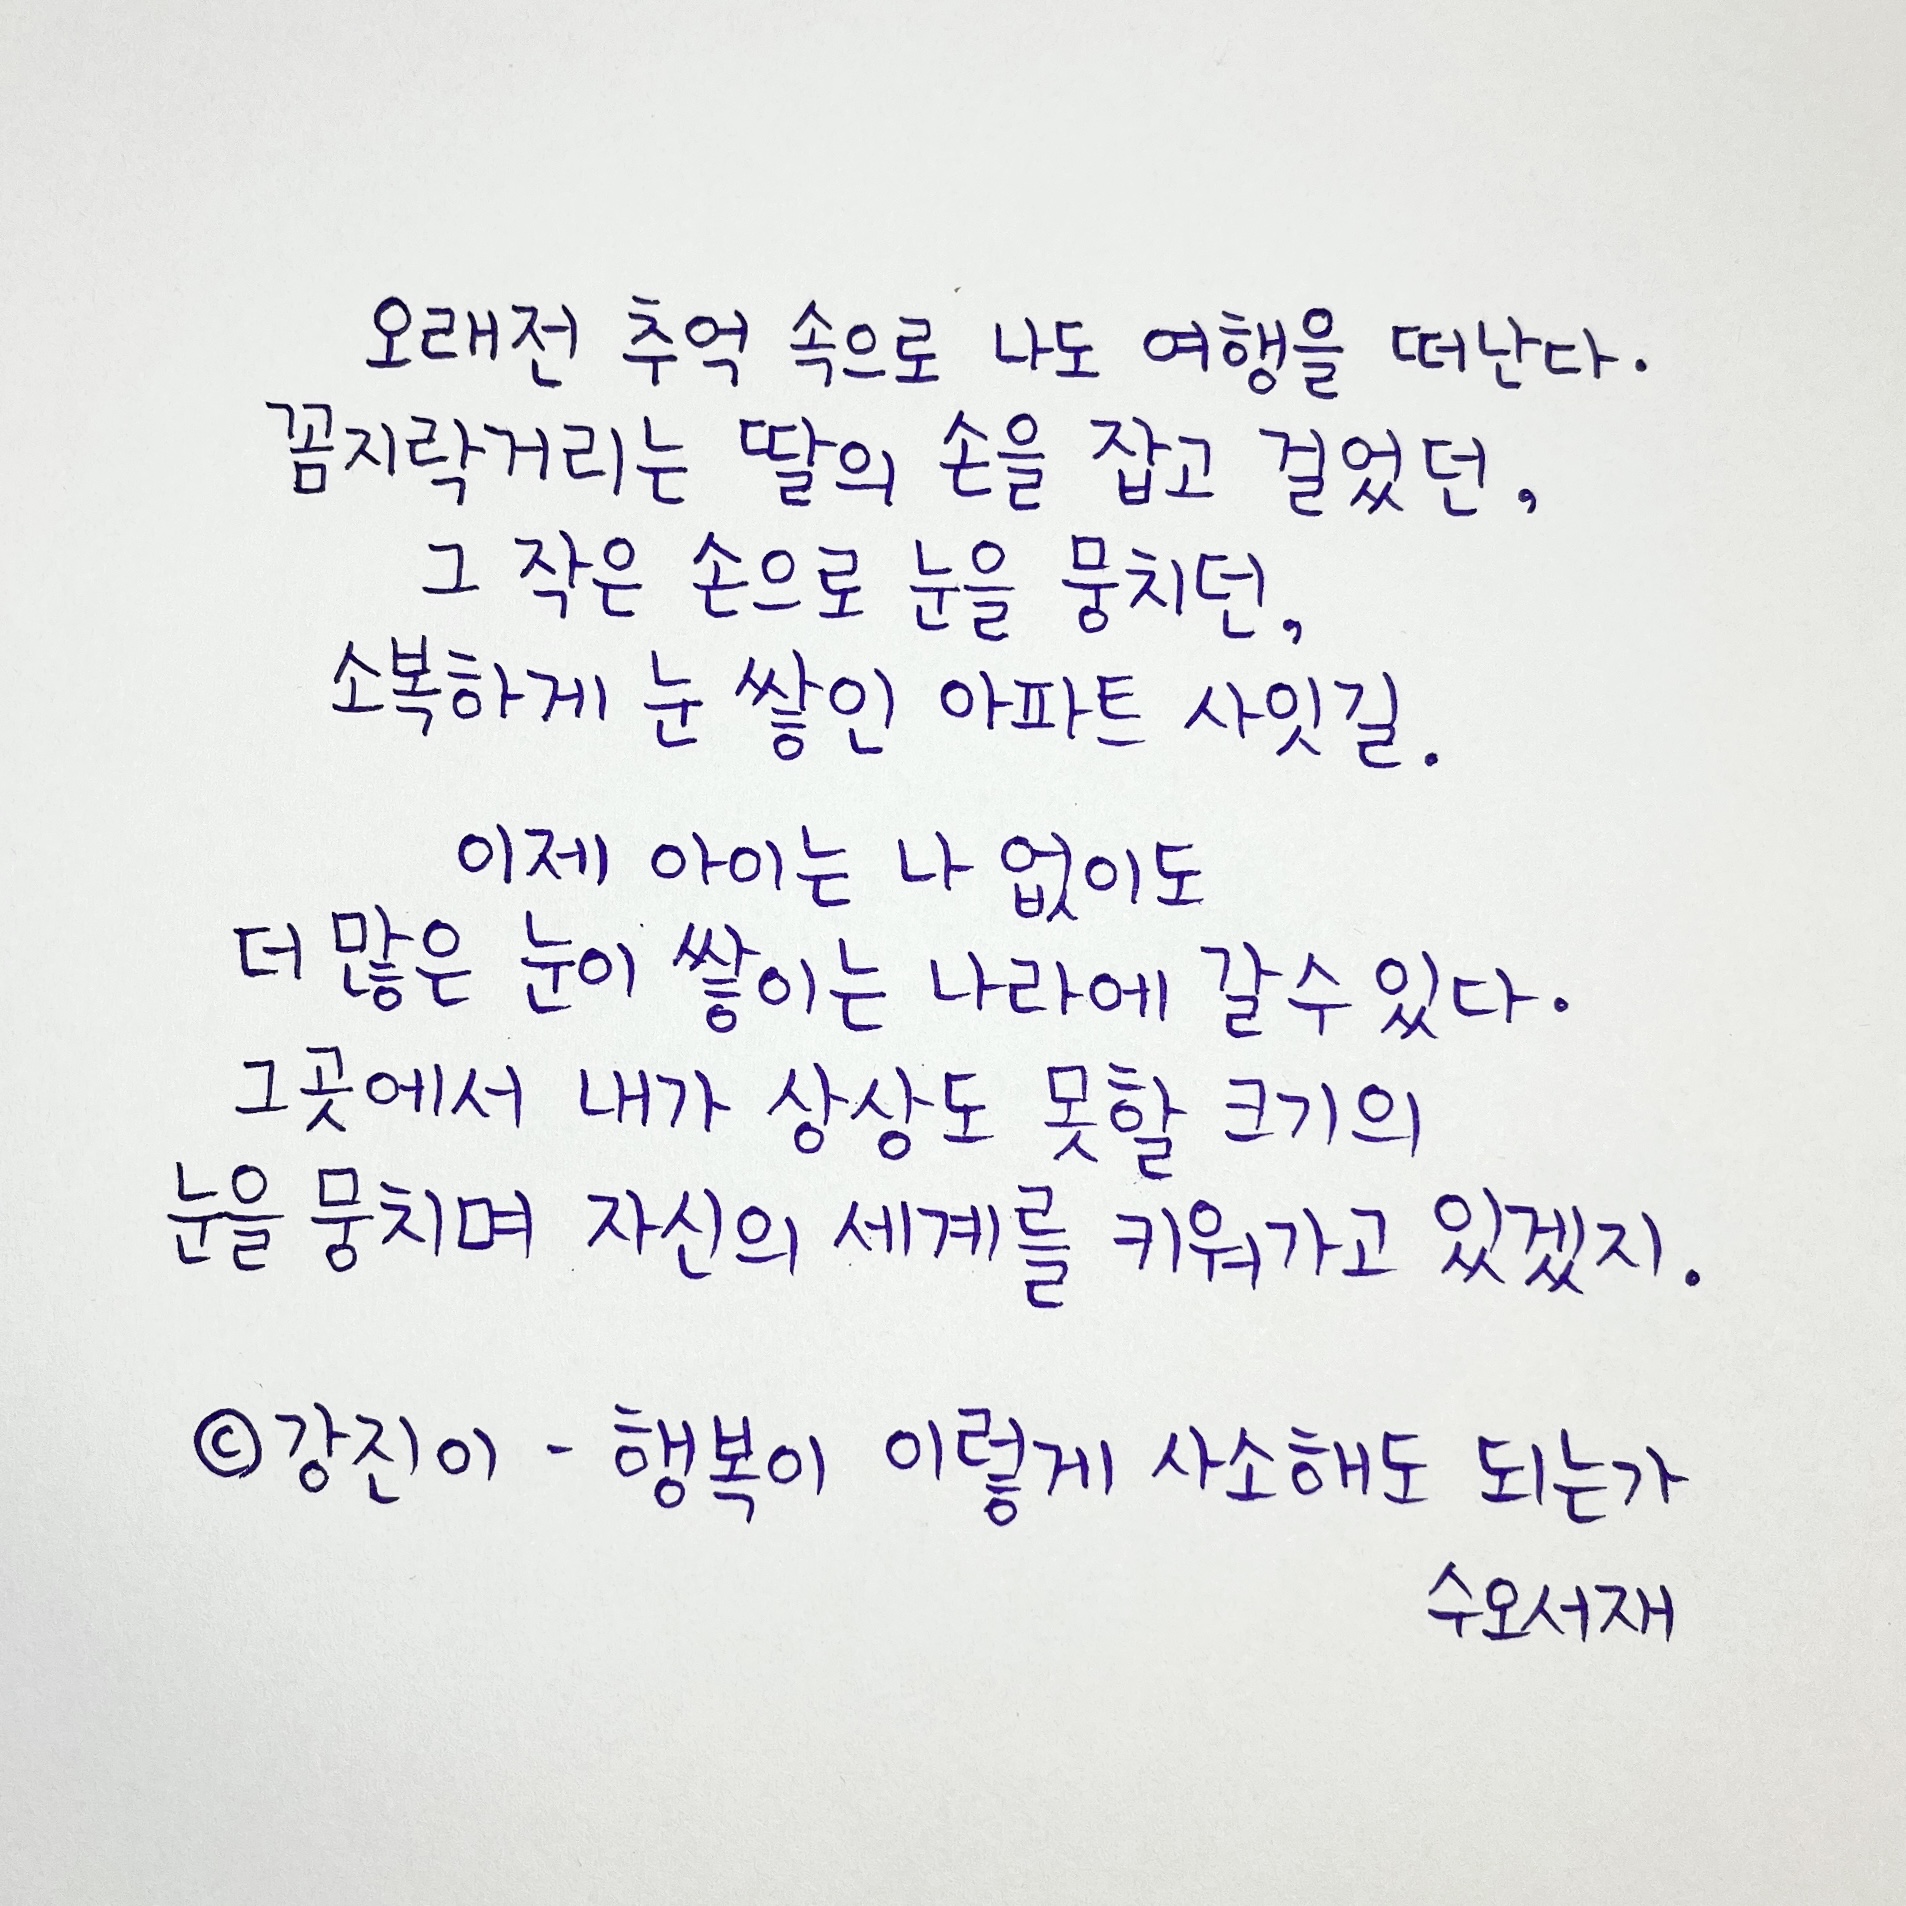 오래전 추억 속으로 나도 여행을 떠난다.
꼼지락거리는 딸의 손을 잡고 걸었던,
그 작은 손으로 눈을 뭉치던,
소복하게 눈 쌓인 아파트 사잇길.
이제 아이는 나 없이도
더 많은 눈이 쌓이는 나라에 갈수있다.
그곳에서 내가 상상도 못할 크기의
눈을 뭉치며 자신의 세계를 키워가고 있겠지.
©강진이 - 행복이 이렇게 사소해도 되는가
수오서재